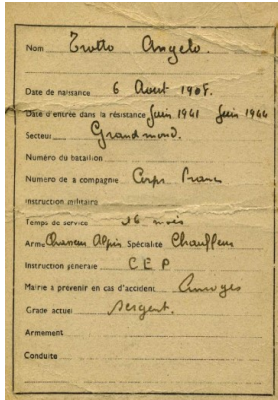 Nom Trotto Angelo.
Date de naissance 6 Aout 1908.
Date d'entrée dans la résistance Juin 1941 Juin 1944
Secteur Grandmond.
Numéro du bataillon
Numéro de la compagnie Corps Franc
Instruction militaire
Temps de service 16 mois
Arme Chasseur Alpin Spécialité Chauffeur
Instruction générale C E P
Mairie à prévenir en cas d'accident
Grade actuel Sergent.
Armement
Conduite